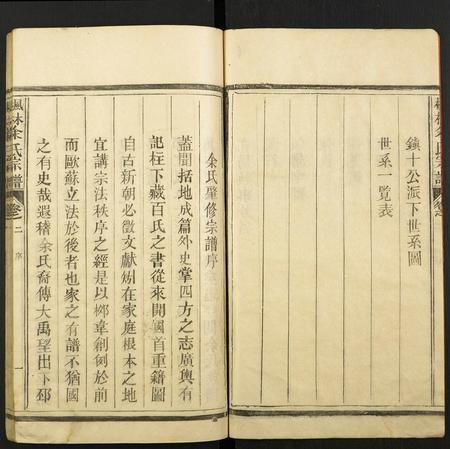 鎮十公派下世系圖
世系一覽表
余氏肇修宗譜序
蓋聞括地成篇外史掌四方之志廣輿有
記柱下藏百氏之書從來開國首重籍圖
自古新朝必徵文獻矧在家庭根本之地
宜講宗法秩序之經是以鄉章創例於前
而歐蘇立法於後者也家之有譜不猶國
之有史哉遐稽余氏裔傳大禹望出下邳
楓林余氏宗譜
卷 二 序 一